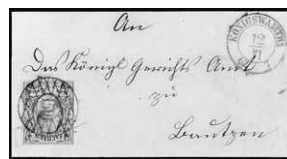 An
KÖNIGSWARTHA
12
VI
Das Königl Gerichts Amt
zu
Bautzen